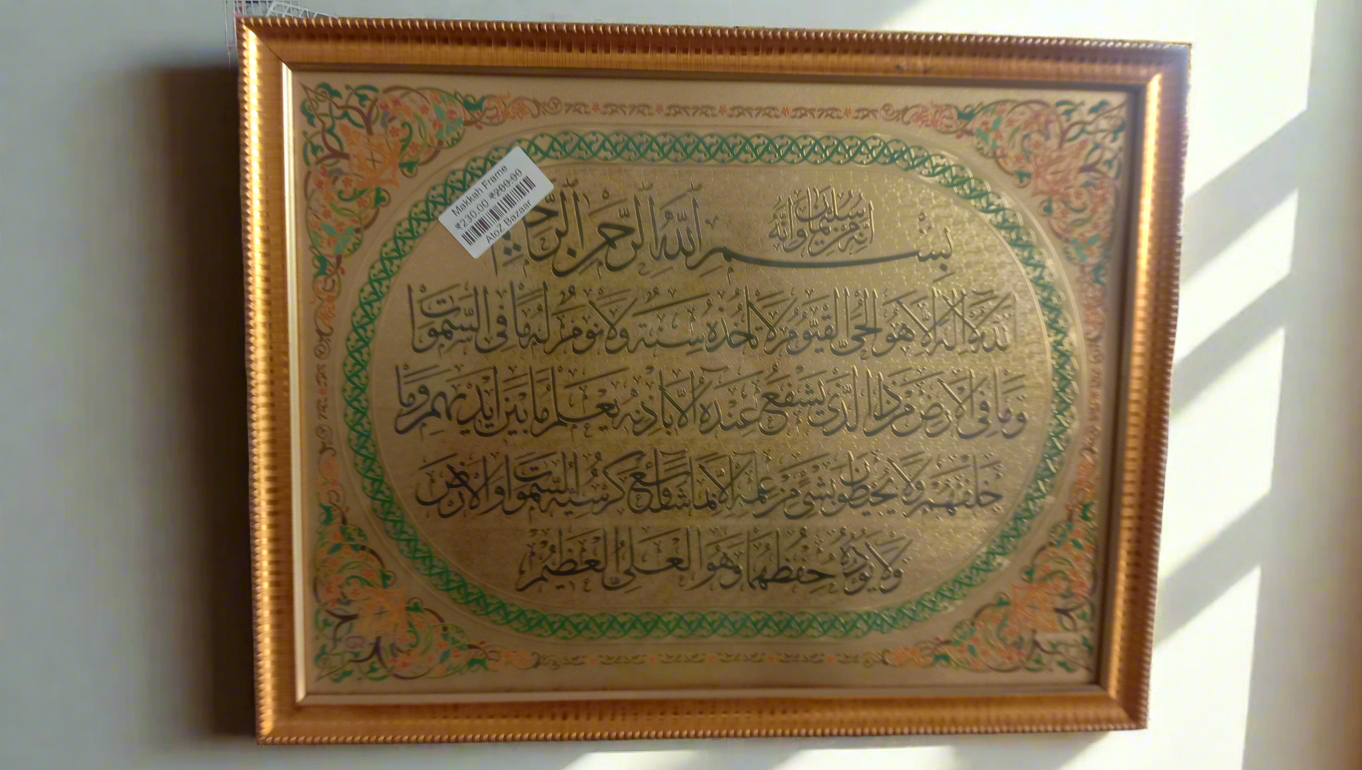 إنه من سليمان وإنه
بسم الله الرحمن
الله لا إله إلا هو الحي القيوم لا تأخذه سنة ولا نوم له ما في السموات
وما في الأرض من ذا الذي يشفع عنده إلا بإذنه يعلم ما بين أيديهم وما
خلفهم ولا يحيطون بشيء من علمه إلا بما شاء وسع كرسيه السموات والأرض
ولا يؤده حفظهما وهو العلي العظيم
Makkah Frame
₹230.00
AtoZ Bazaar